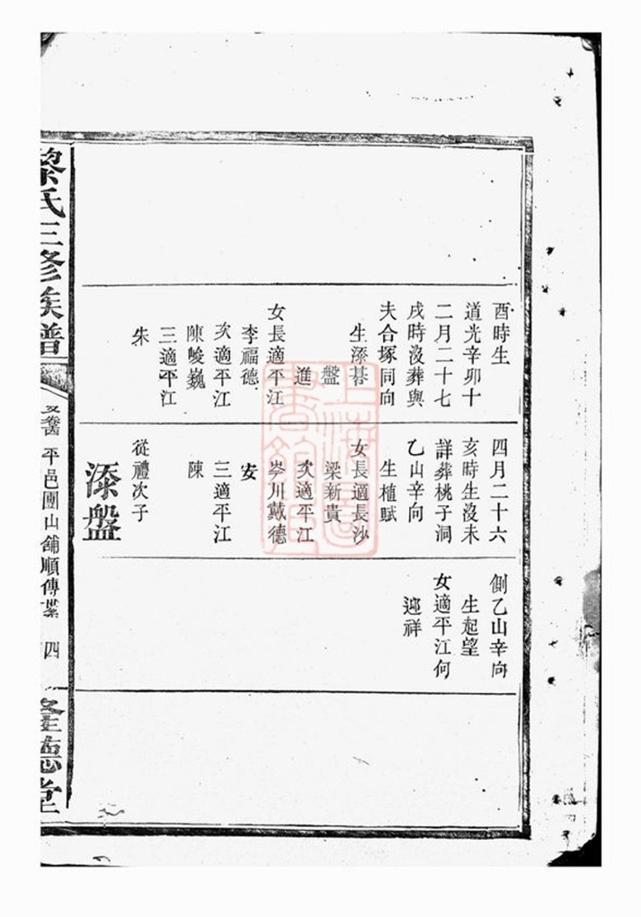 酉時生
道光辛卯十
二月二十七
戌時沒葬與
夫合塚同向
生漆碁
盤
進
女長適平江
李福德
次適平江
陳峻巍
三適平江
朱
四月二十六
亥時生沒未
詳葬桃子洞
乙山辛向
生植賦
女長適長沙
梁新貴
次適平江
岑川戴德
安
三適平江
陳
從禮次子
漆盤
側乙山辛向
生起望
女適平江何
迎祥
黎氏三修族譜
平邑團山舖順傳
四
隆德堂
上海圖書館藏